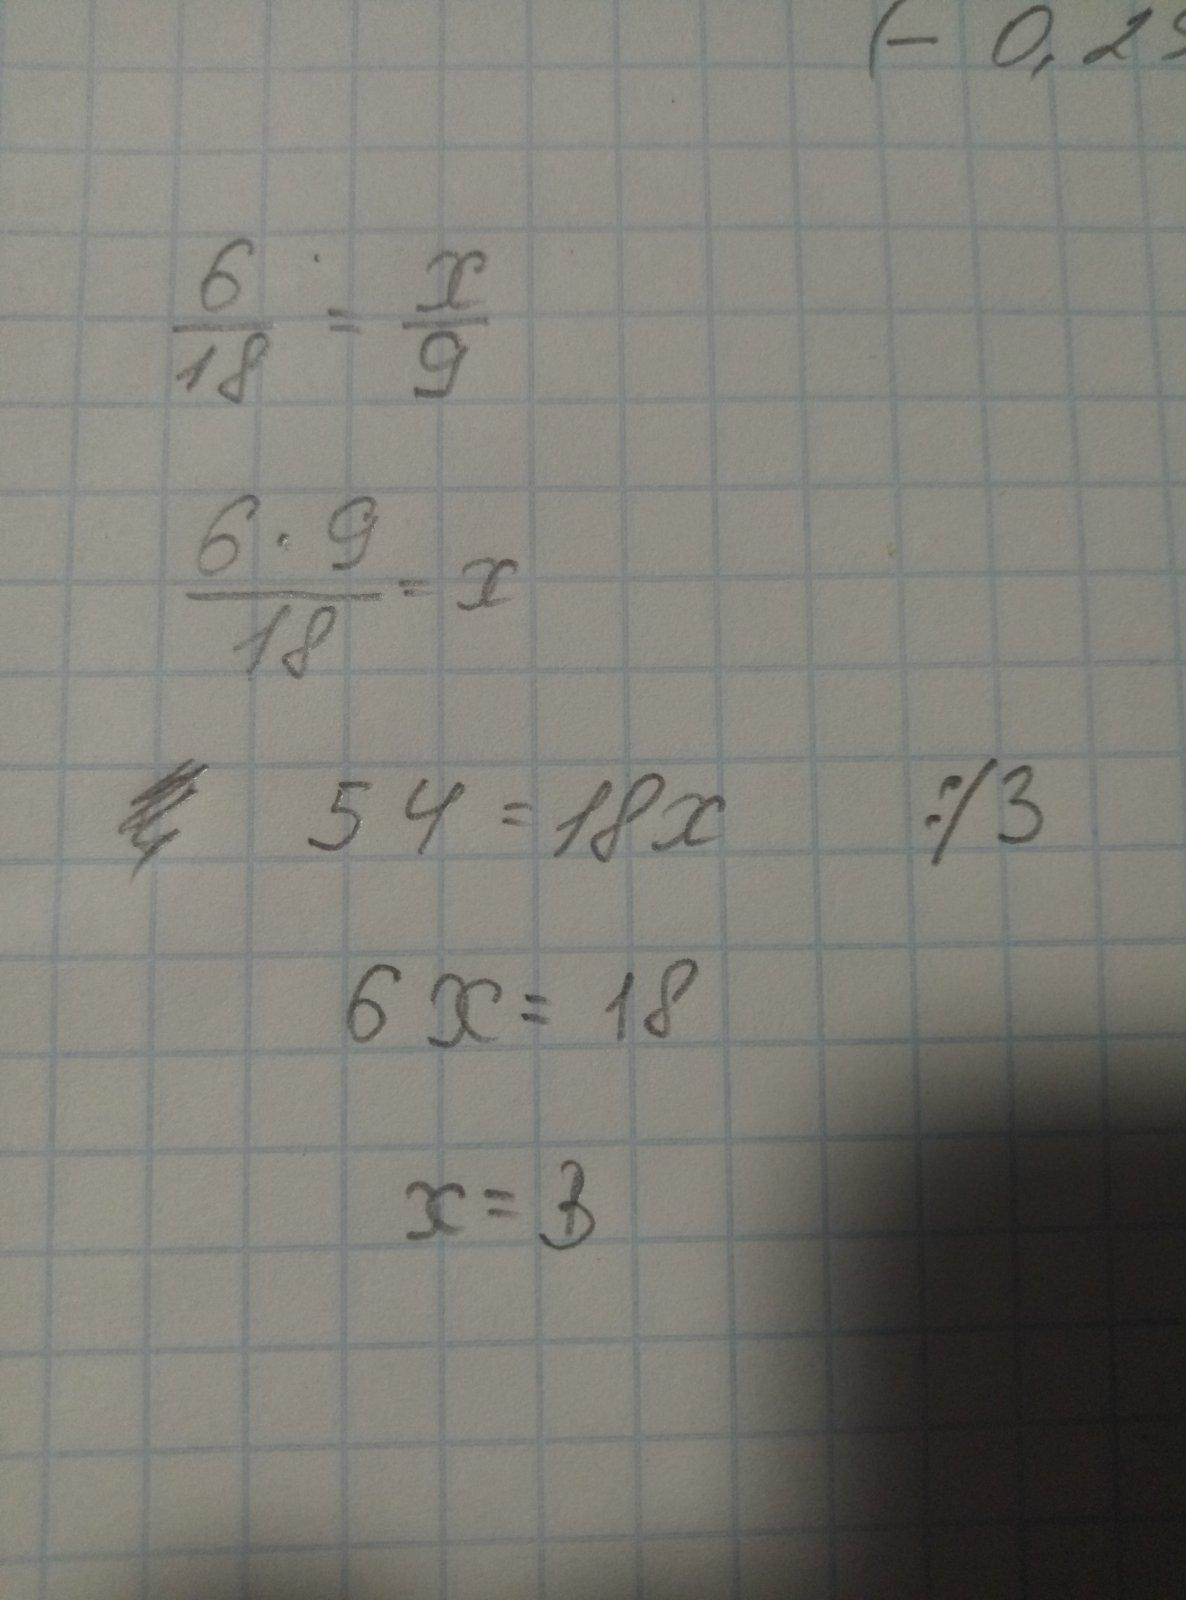 (- 0,2
6/18 = x/9
6 · 9/18 = x
54 = 18x :/3
6x = 18
x = 3